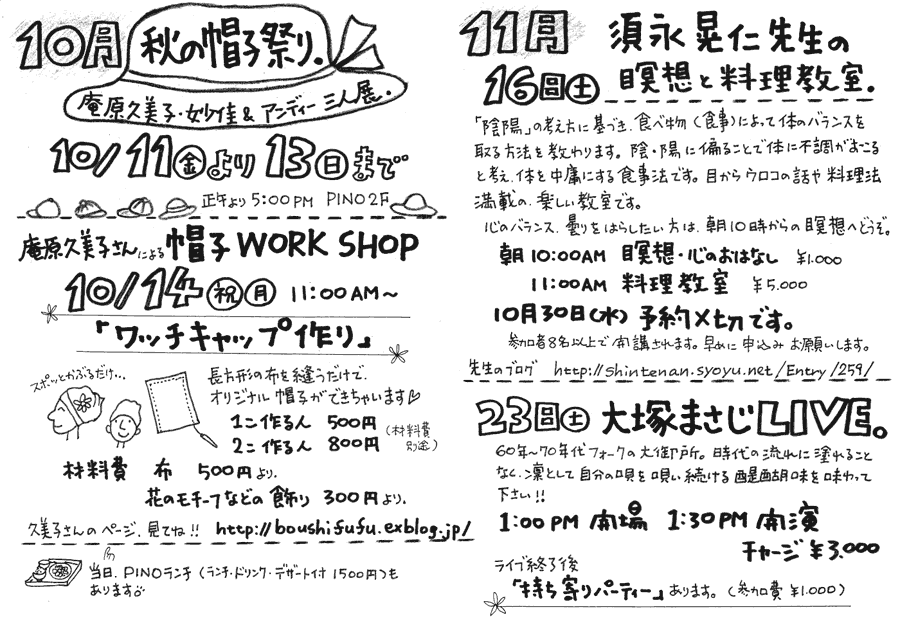 10月 秋の帽子祭り.
庵原久美子・妙佳&アンディー 三人展.
10/11金より13日まで
正午より 5:00PM PINO2F
庵原久美子さんによる 帽子 WORK SHOP
10/14祝月 11:00AM〜
「ワッチキャップ作り」
スポッとかぶるだけ…
長方形の布を縫うだけで、
オリジナル帽子ができちゃいます♡
1コ作るん 500円
2コ作るん 800円
(材料費別途)
材料費 布 500円より.
花のモチーフなどの飾り 300円より.
久美子さんのページ、見てね!! http://boushifufu.exblog.jp/
当日、PINOランチ (ランチ・ドリンク・デザート付 1500円)も
あります
11月 須永晃仁先生の
16日土 瞑想と料理教室.
「陰陽」の考え方に基づき、食べ物(食事)によって体のバランスを
取る方法を教わります。陰・陽に偏ることで体に不調がおこる
と考え、体を中庸にする食事法です。目からウロコの話や料理法
満載の、楽しい教室です。
心のバランス、曇りをはらしたい方は、朝10時からの瞑想へどうぞ。
朝10:00AM 瞑想・心のおはなし ¥1.000
11:00AM 料理教室 ¥5.000
10月30日(水) 予約〆切です。
参加者8名以上で開講されます。早めに申込みお願いします。
先生のブログ http://shintenan.syoyu.net/Entry/259/
23日土 大塚まさじLIVE。
60年〜70年代フォークの大御所。時代の流れに塗れること
なく、凛として自分の唄を唄い続ける醍醐味を味わって
下さい!!
1:00PM 開場 1:30PM 開演
チャージ ¥3.000
ライブ終了後
「持ち寄りパーティー」あります。(参加費 ¥1.000)